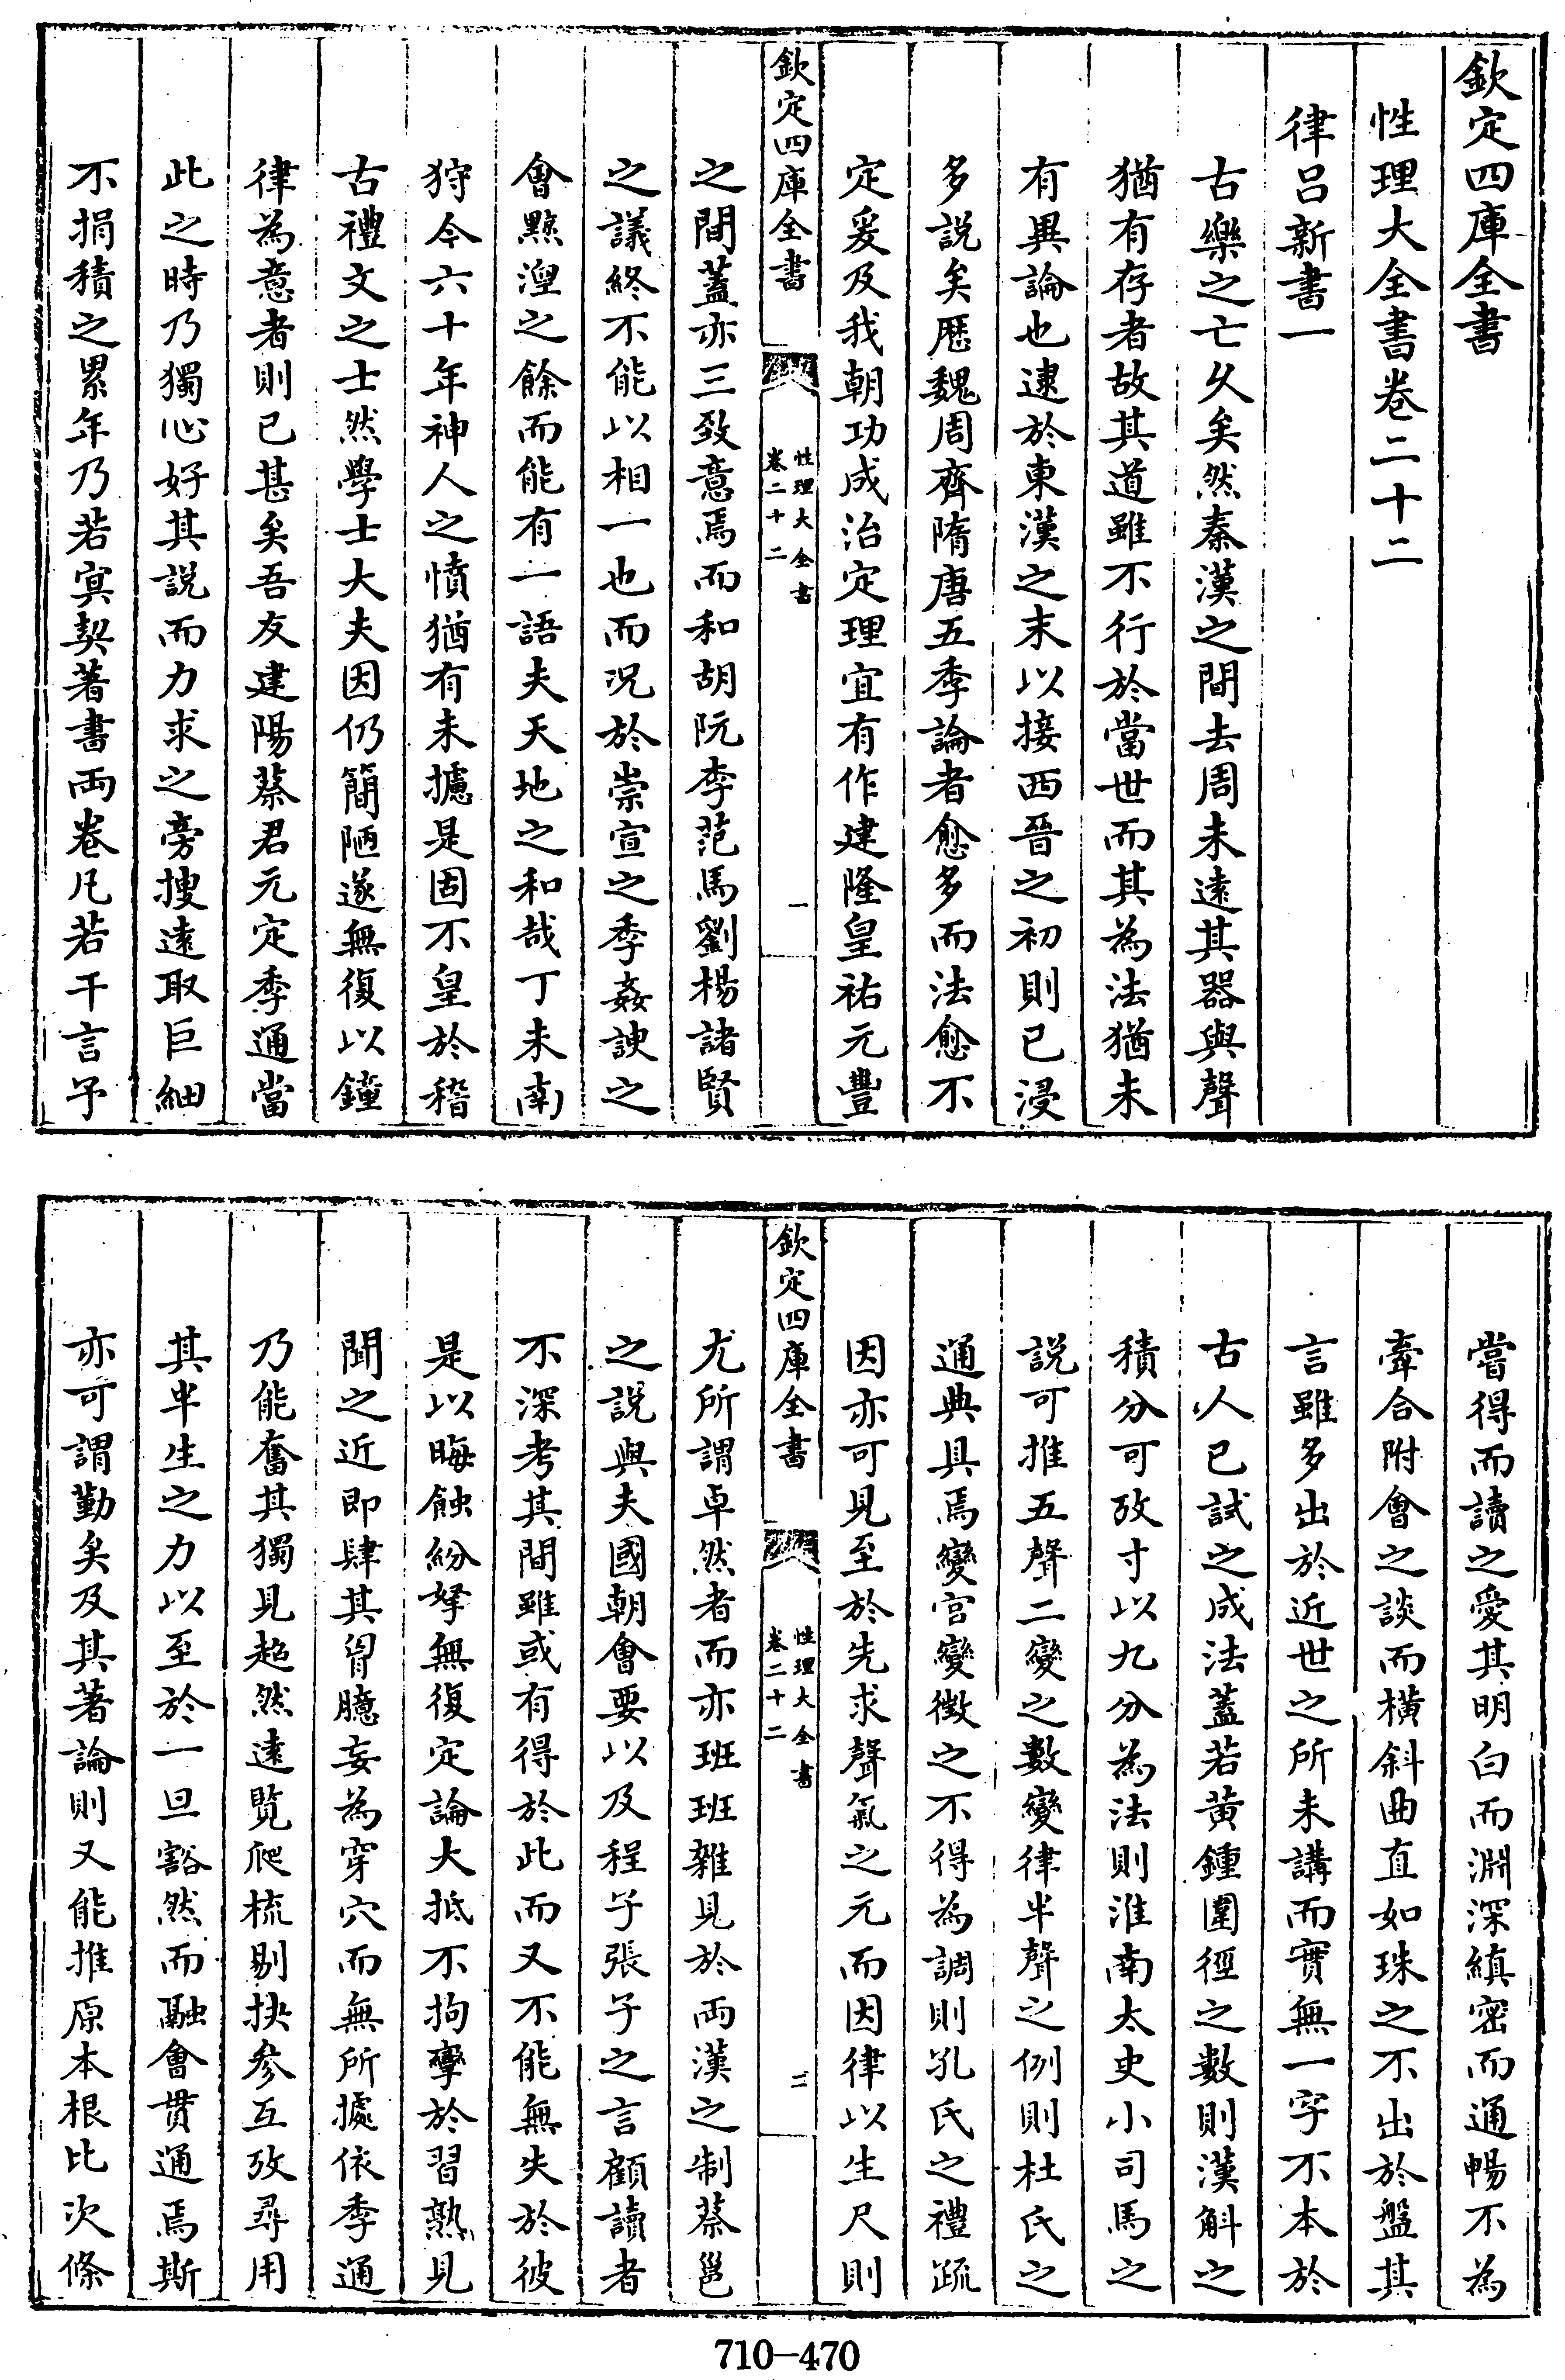 欽定四庫全書
性理大全書卷二十二
律呂新書一
古樂之亡久矣然秦漢之間去周未遠其器與聲
猶有存者故其道雖不行於當世而其為法猶未
有異論也逮於東漢之末以接西晉之初則已浸
多説矣歷魏周齊隋唐五季論者愈多而法愈不
定爰及我朝功成治定理宜有作建隆皇祐元豐
欽定四庫全書
性理大全書
卷二十二
一
之間蓋亦三致意焉而和胡阮李范馬劉楊諸賢
之議終不能以相一也而况於崇宣之季姦諛之
會黥涅之餘而能有一語夫天地之和哉丁未南
狩今六十年神人之憤猶有未攄是固不皇於稽
古禮文之士然學士大夫因仍簡陋遂無復以鐘
律為意者則已甚矣吾友建陽蔡君元定季通當
此之時乃獨心好其説而力求之旁搜遠取巨細
不捐積之累年乃若㝠契著書兩卷凡若干言予
嘗得而讀之愛其明白而淵深縝密而通暢不為
牽合附會之談而橫斜曲直如珠之不出於盤其
言雖多出於近世之所未講而實無一字不本於
古人已試之成法蓋若黄鍾圍徑之數則漢斛之
積分可攷寸以九分為法則淮南太史小司馬之
説可推五聲二變之數變律半聲之例則杜氏之
通典具焉變宮變徵之不得為調則孔氏之禮疏
因亦可見至於先求聲氣之元而因律以生尺則
欽定四庫全書
性理大全書
卷二十二
二
尤所謂卓然者而亦班班雜見於兩漢之制蔡邕
之說與夫國朝會要以及程子張子之言顧讀者
不深考其間雖或有得於此而又不能無失於彼
是以晦蝕紛挐無復定論大抵不拘攣於習熟見
聞之近即肆其胷臆妄為穿穴而無所㨿依季通
乃能奮其獨見超然遠覽爬梳剔抉參互攷尋用
其半生之力以至於一旦豁然而融會貫通焉斯
亦可謂勤矣及其著論則又能推原本根比次條
710-470